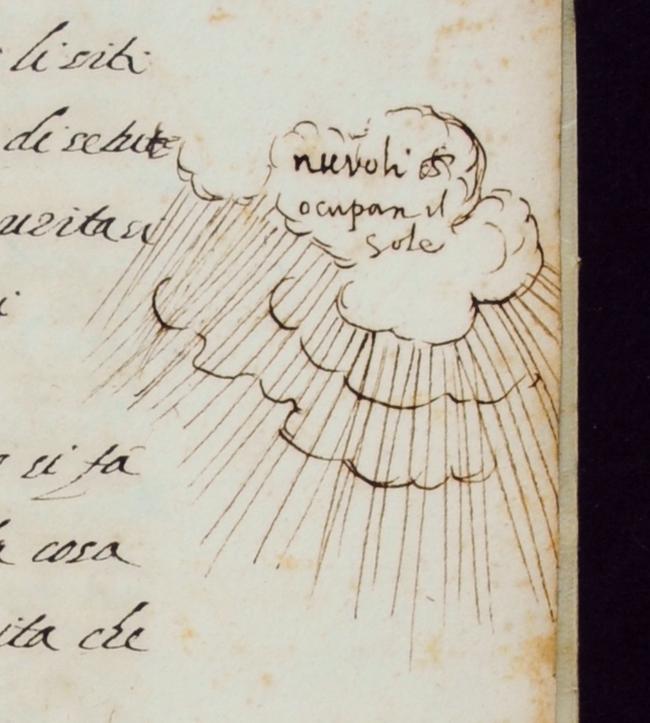 li siti
di
nuvoli
ocupan il
sole
si fa
cosa
ita che